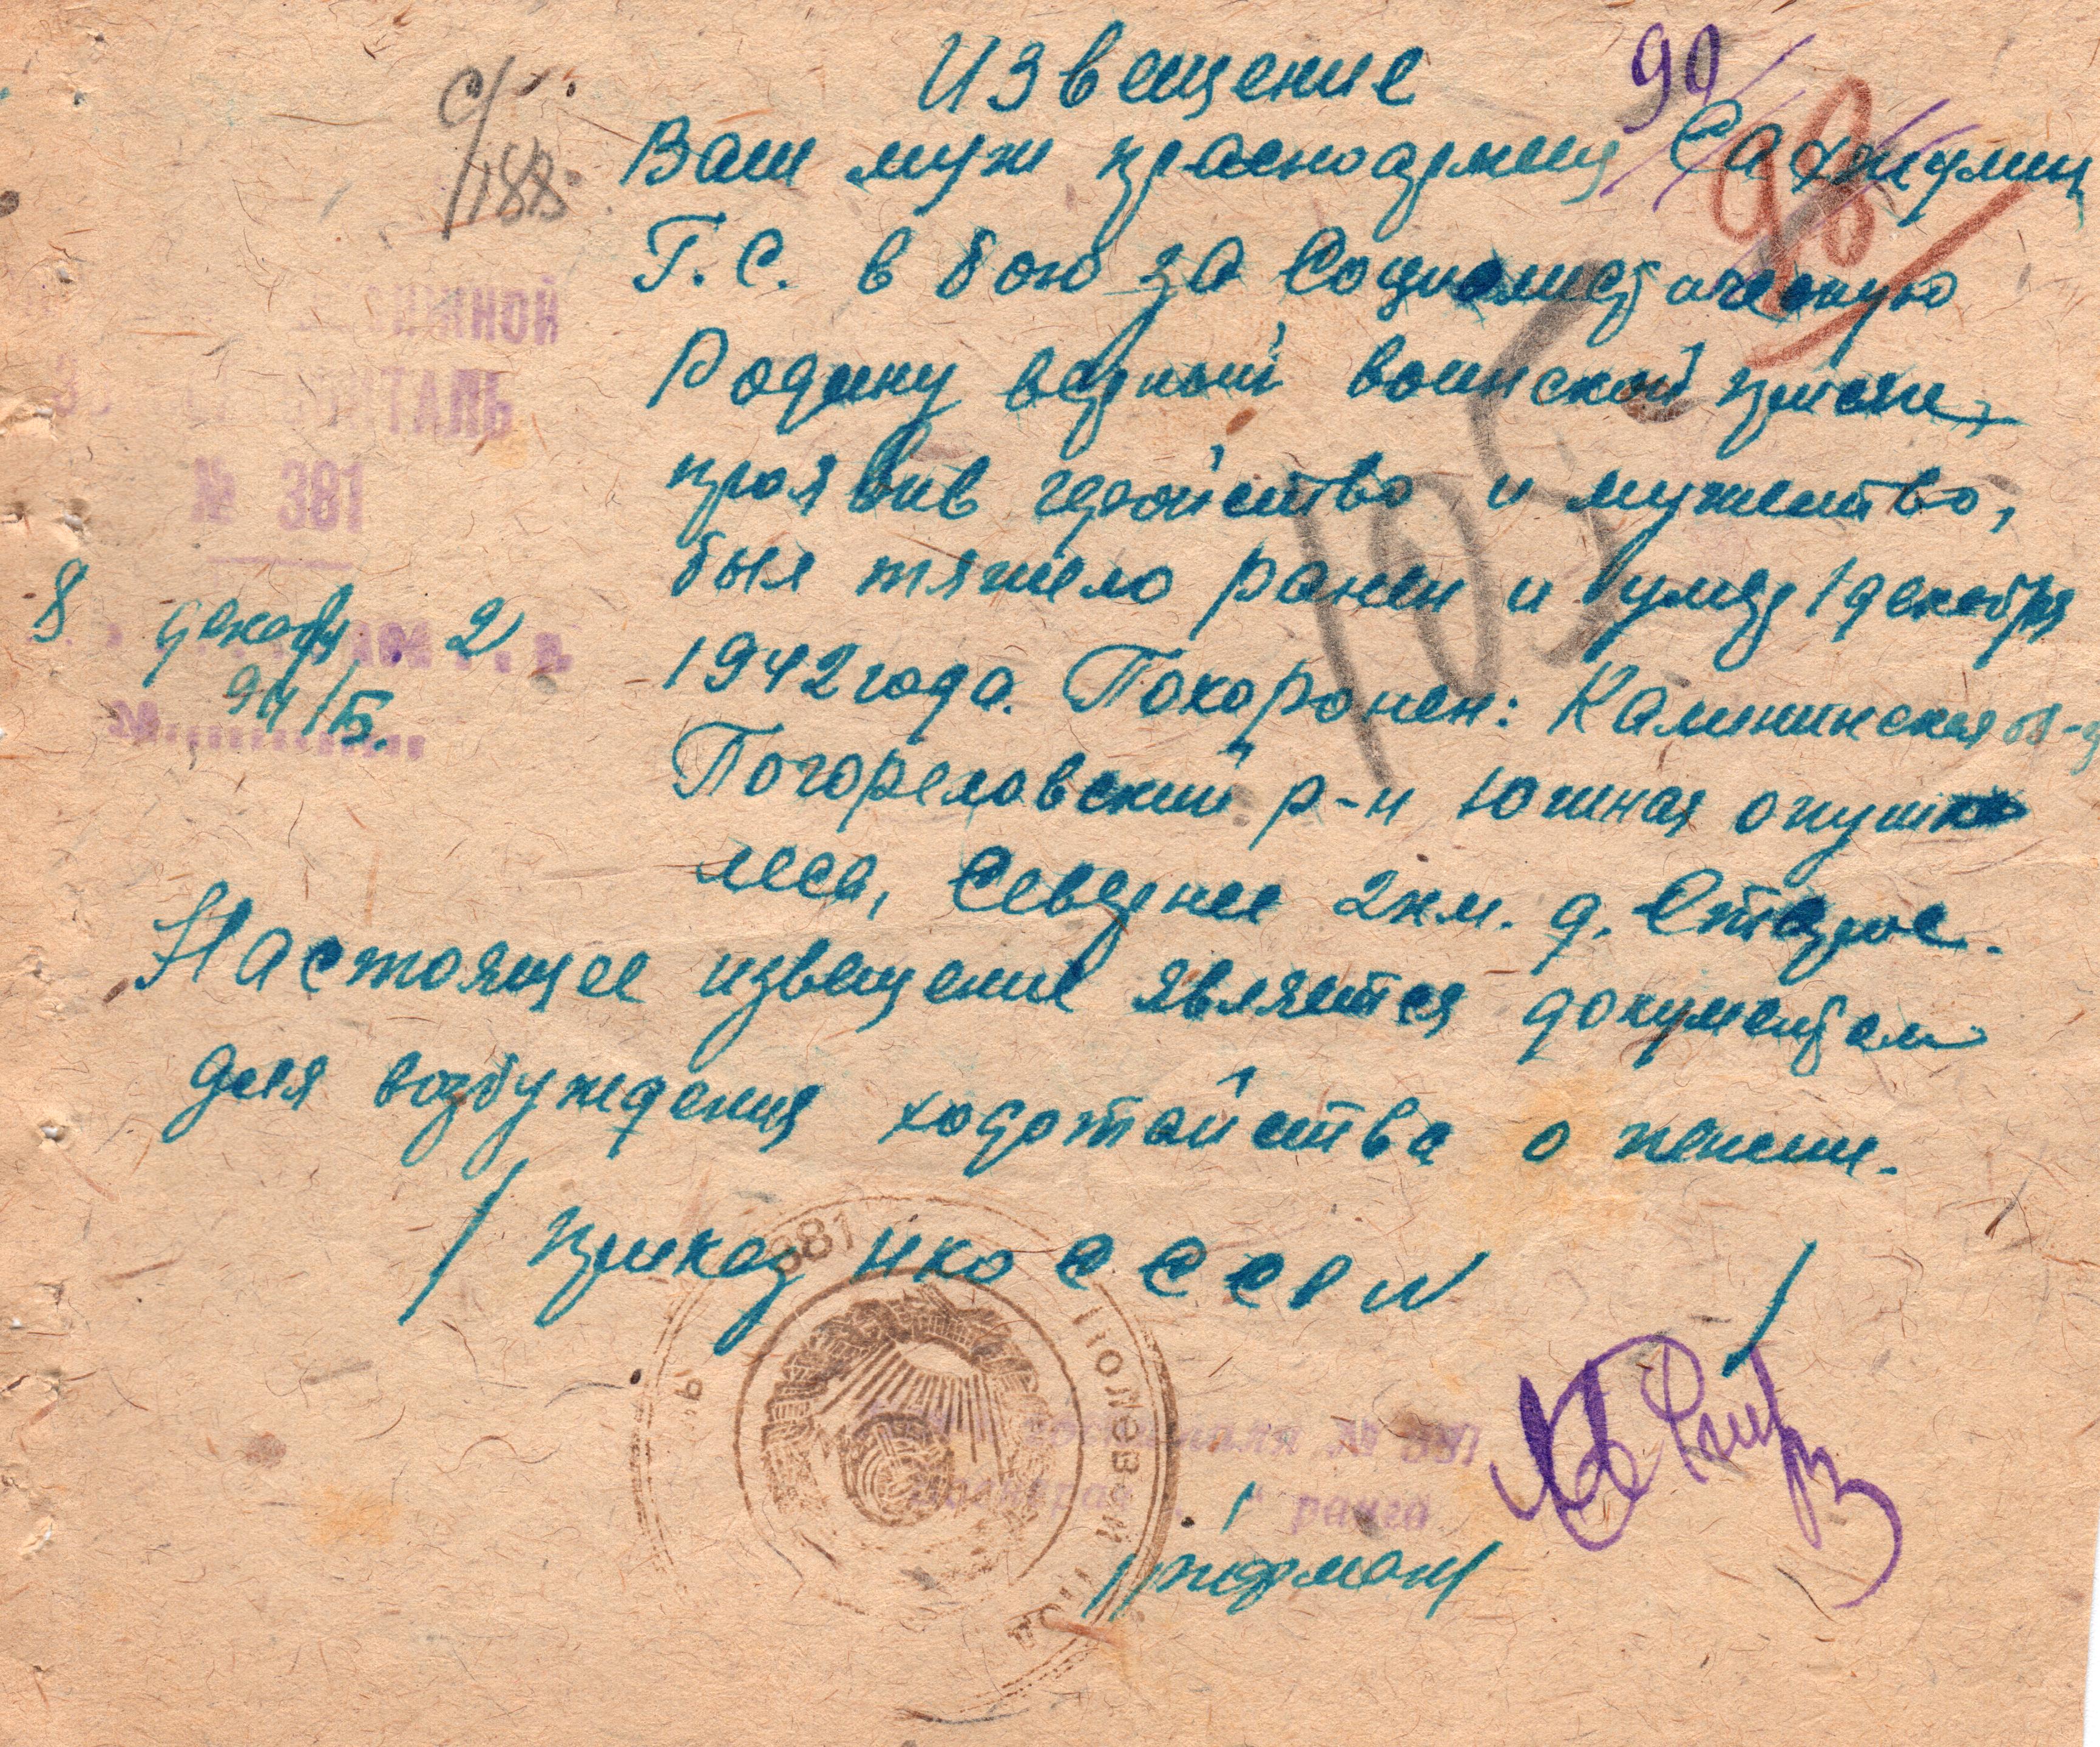 Извещение
90
98
с/188
105
Ваш муж красноармеец
Г. С. в бою за Социалистическую
Родину верный воинской присяге,
проявив геройство и мужество,
был тяжело ранен и умер 1 декабря
1942 года. Похоронен: Калининская
Погореловский р-н Южная опушка
леса, Севернее 2 км. д.
ТАЛЬ
№ 381
8 декабр 2
94/Б.
Настоящее извещение является документом
для возбуждения ходатайства о пенсии.
/ Приказ НКО СССР N /
381 ПОЛЕВЫЙ
госпиталя № 381
ранга